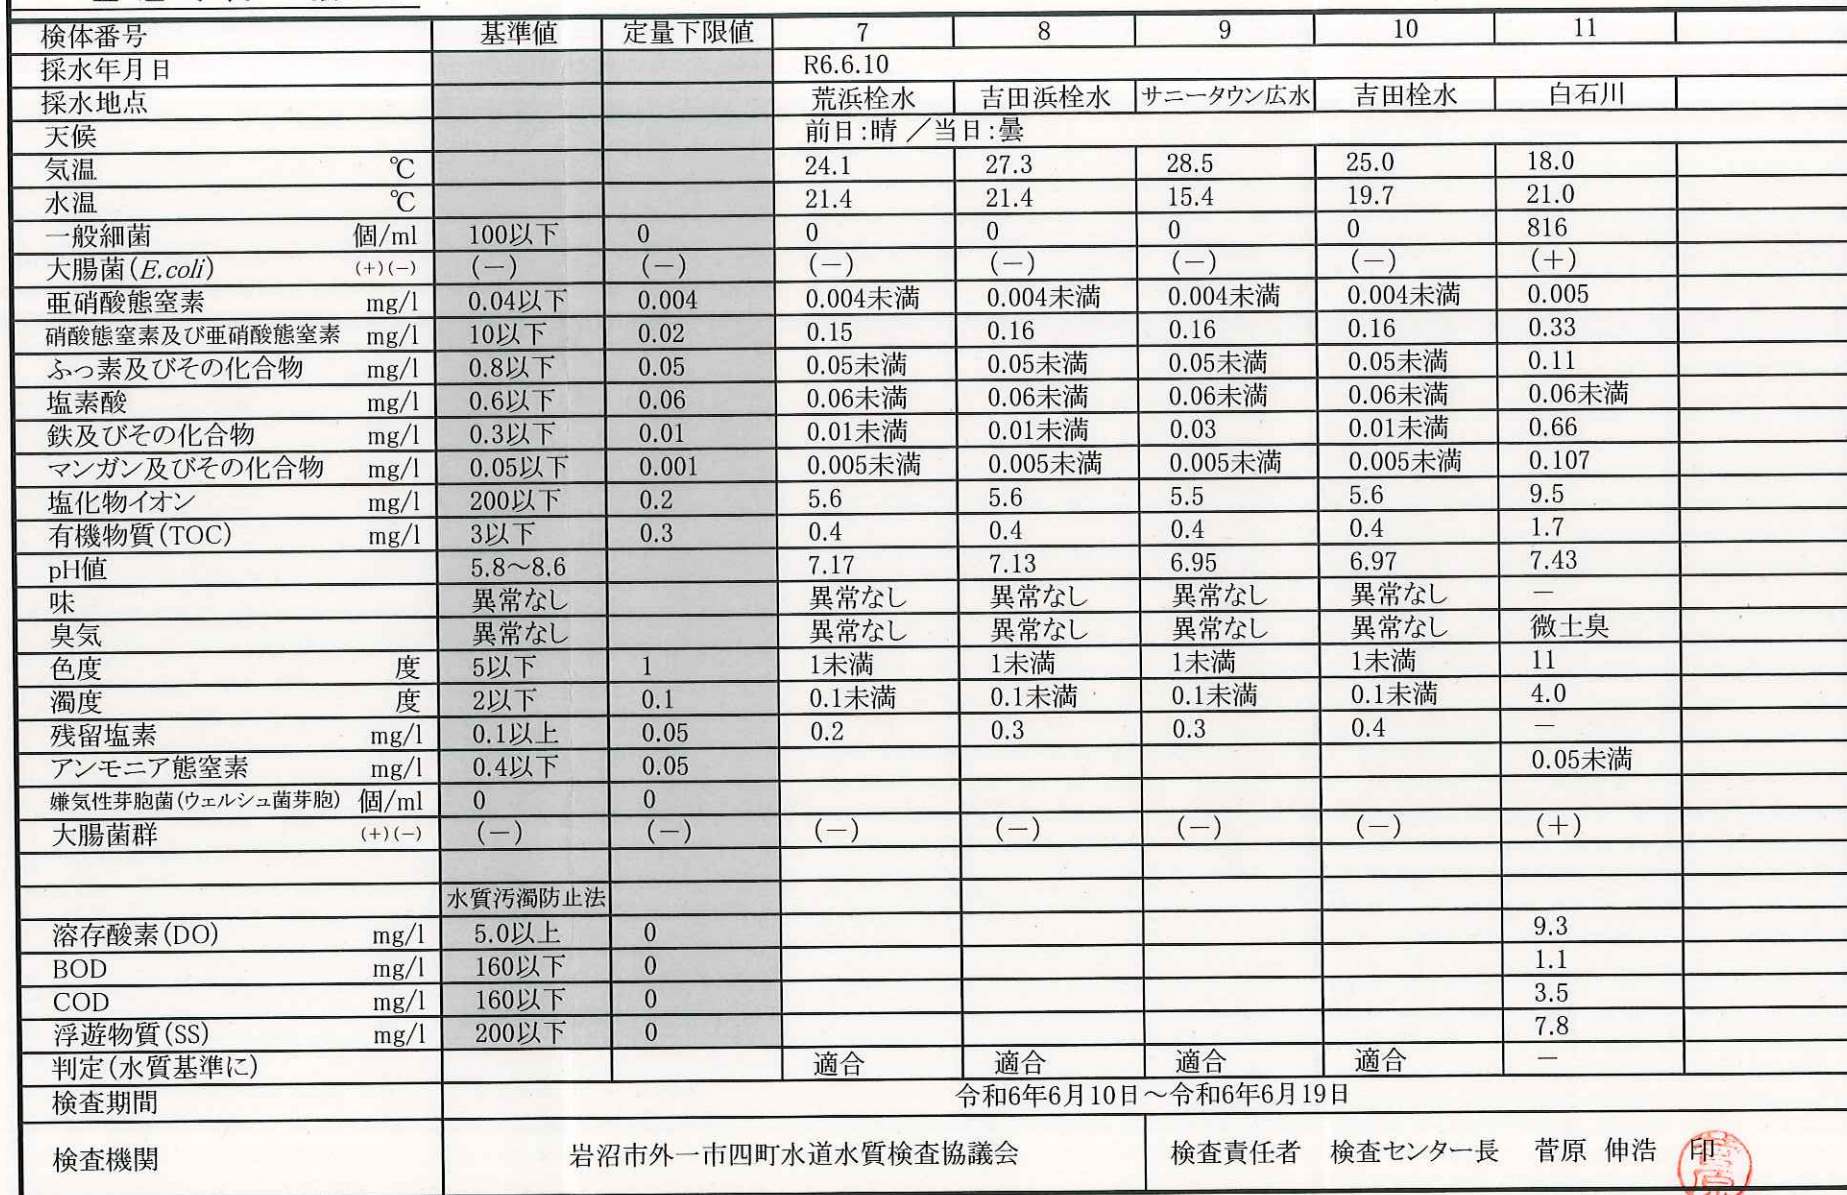 検体番号 基準値 定量下限値 7 8 9 10 11
採水年月日 R6.6.10
採水地点 荒浜栓水 吉田浜栓水 サニータウン広水 吉田栓水 白石川
天候 前日:晴 ／当日:曇
気温 ℃ 24.1 27.3 28.5 25.0 18.0
水温 ℃ 21.4 21.4 15.4 19.7 21.0
一般細菌 個/ml 100以下 0 0 0 0 0 816
大腸菌(E.coli) (+)(−) (−) (−) (−) (−) (−) (−) (＋)
亜硝酸態窒素 mg/l 0.04以下 0.004 0.004未満 0.004未満 0.004未満 0.004未満 0.005
硝酸態窒素及び亜硝酸態窒素 mg/l 10以下 0.02 0.15 0.16 0.16 0.16 0.33
ふっ素及びその化合物 mg/l 0.8以下 0.05 0.05未満 0.05未満 0.05未満 0.05未満 0.11
塩素酸 mg/l 0.6以下 0.06 0.06未満 0.06未満 0.06未満 0.06未満 0.06未満
鉄及びその化合物 mg/l 0.3以下 0.01 0.01未満 0.01未満 0.03 0.01未満 0.66
マンガン及びその化合物 mg/l 0.05以下 0.001 0.005未満 0.005未満 0.005未満 0.005未満 0.107
塩化物イオン mg/l 200以下 0.2 5.6 5.6 5.5 5.6 9.5
有機物質(TOC) mg/l 3以下 0.3 0.4 0.4 0.4 0.4 1.7
pH値 5.8〜8.6 7.17 7.13 6.95 6.97 7.43
味 異常なし 異常なし 異常なし 異常なし 異常なし −
臭気 異常なし 異常なし 異常なし 異常なし 異常なし 微土臭
色度 度 5以下 1 1未満 1未満 1未満 1未満 11
濁度 度 2以下 0.1 0.1未満 0.1未満 0.1未満 0.1未満 4.0
残留塩素 mg/l 0.1以上 0.05 0.2 0.3 0.3 0.4 −
アンモニア態窒素 mg/l 0.4以下 0.05 0.05未満
嫌気性芽胞菌(ウェルシュ菌芽胞) 個/ml 0 0
大腸菌群 (+)(−) (−) (−) (−) (−) (−) (−) (＋)
水質汚濁防止法
溶存酸素(DO) mg/l 5.0以上 0 9.3
BOD mg/l 160以下 0 1.1
COD mg/l 160以下 0 3.5
浮遊物質(SS) mg/l 200以下 0 7.8
判定(水質基準に) 適合 適合 適合 適合 −
検査期間 令和6年6月10日〜令和6年6月19日
検査機関 岩沼市外一市四町水道水質検査協議会 検査責任者 検査センター長 菅原 伸浩 印